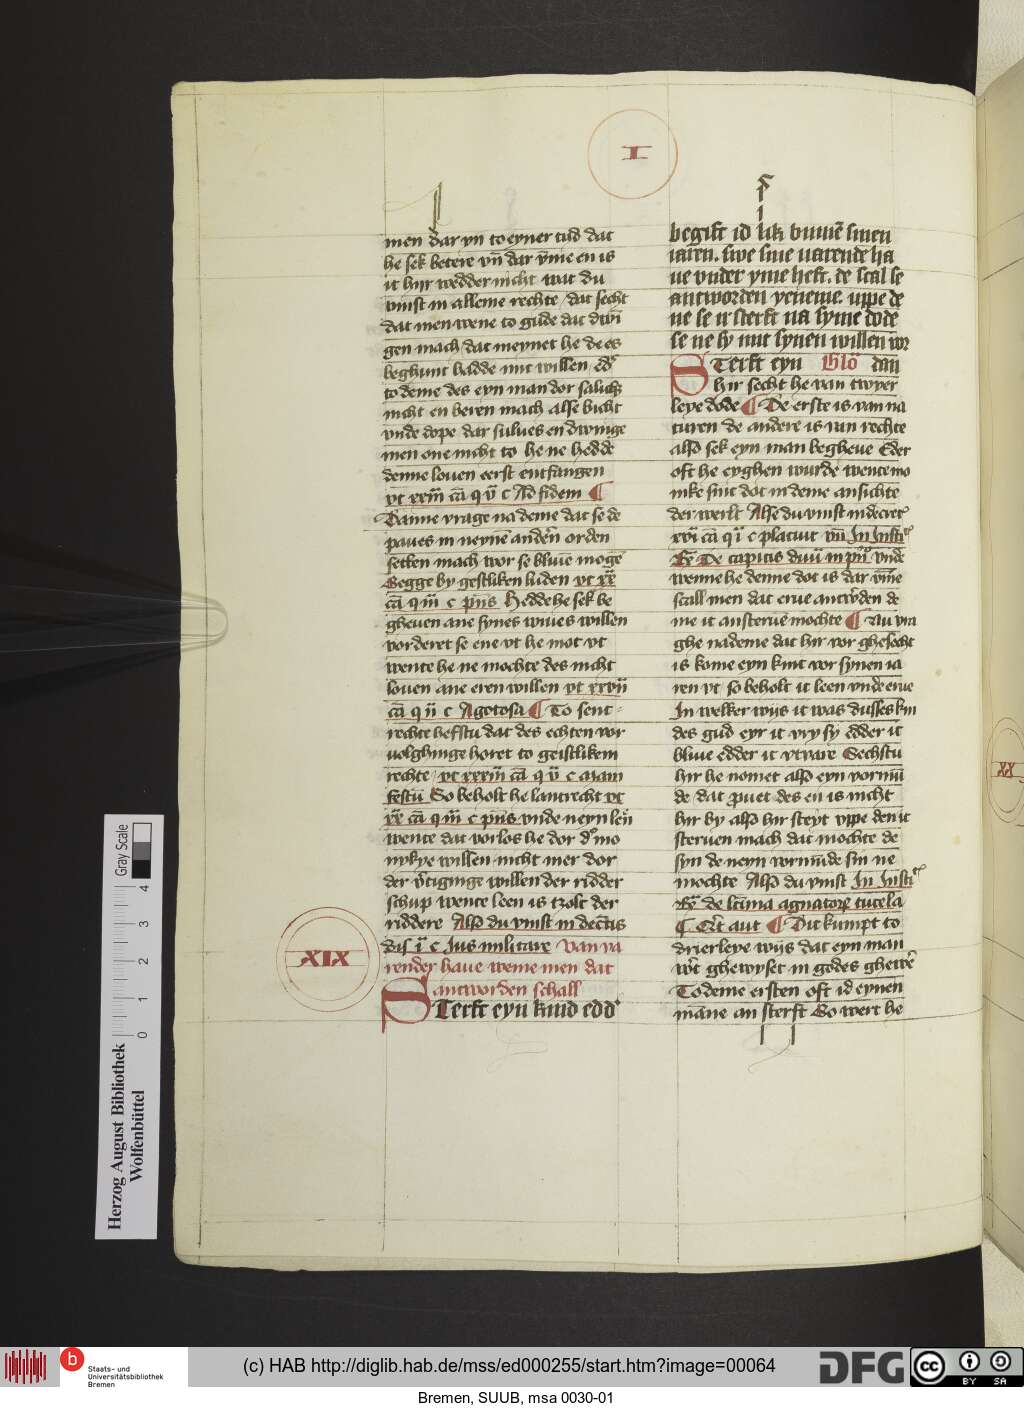 I
men dar yn to eyner tid dat
he sek betere vn̄ dar v̄me en is
it hyr wedder nicht wat du
vinst in alleme rechte dat secht
dat men wene to gude dat dwī
gen mach dat meynet he de es
beghunt hadde mit willen edʾ
to deme des eyn man dor salich
nicht en beren mach alse bicht
vnde dope dar sulues en dwinge
men one nicht to he ne hedde
denne louen eerst entfangen
vt xxiii cā q v c Ad fidem ¶
Danne vrage na deme dat se de
paues in neynē andern orden
setten mach wor se bliuen moge
Begge by gestliken luden vt xx
cā q iii c p̄ns Hedde he sek be
gheuen ane synes wiues willen
vorderet se ene vt he mot vt
wente he ne mochte des nicht
louen ane eren willen vt xxvii
cā q ii c Agotosa ¶ To sent
rechte hefstu dat des echten vor
uolghinge horet to geistlikem
rechte vt xxxiii cā q v c aiam
festū So beholt he lantrecht vt
xx cā q iii c p̄ns vnde neyn len
wente dat vorlos he dor dʾ mo
nykye willen nicht mer dor
der v̄tiginge willen der ridder
schup wente leen is tzolt der
riddere Also du vinst in dectis
dis i c Jus militare Van va
render haue weme men dat
antworden schall
XIX
STerft eyn kind eddʾ
begift id sik binnē sinen
iaren. swe sine varende ha
ue vnder yme heft. de scal se
antworden yeneme. uppe de
ne se irsterft na syme dode
se ne sy mit synen willen vor
STerft eyn Glo dan
hir secht he van twyer
leye dode ¶ De erste is van na
turen de andere is van rechte
also sek eyn man begheue Eder
oft he eyghen wurde wente mo
nike sint dot in deme ansichte
der werlt Alse du vinst in decret
xvi cā q i c placuit vn̄ In Insti
Ff De capitis diuū in p̄n vnde
wenne he denne dot is dar v̄me
scall men dat erue antwʾden de
me it ansteruē mochte ¶ Nu vra
ghe na deme dat hir vor ghesecht
is kome eyn kint vor synen ia
ren vt so beholt it leen vnde erue
In welker wijs it was dusses kin
des gud eyr it vry sy edder it
bliue edder it vtvare Sechstu
hir he nomet also eyn vormū
de dat pruet des en is nicht
hir by also hir steyt vppe den it
steruen mach dat mochte de
syn de neyn vormūde sin ne
mochte Also du vinst In Insti
Ff de ltīma agnatorꝝ tutela
C Et aut ¶ Dit kumpt to
drierleye wijs dat eyn man
wʾt ghewyset in godes ghewēʾ
To deme ersten oft id eynen
māne an sterft So wert he
XX
Gray Scale
4
3
2
1
0
Herzog August Bibliothek
Wolfenbüttel
b
Staats- und
Universitätsbibliothek
Bremen
(c) HAB http://diglib.hab.de/mss/ed000255/start.htm?image=00064
DFG
cc
BY SA
Bremen, SUUB, msa 0030-01